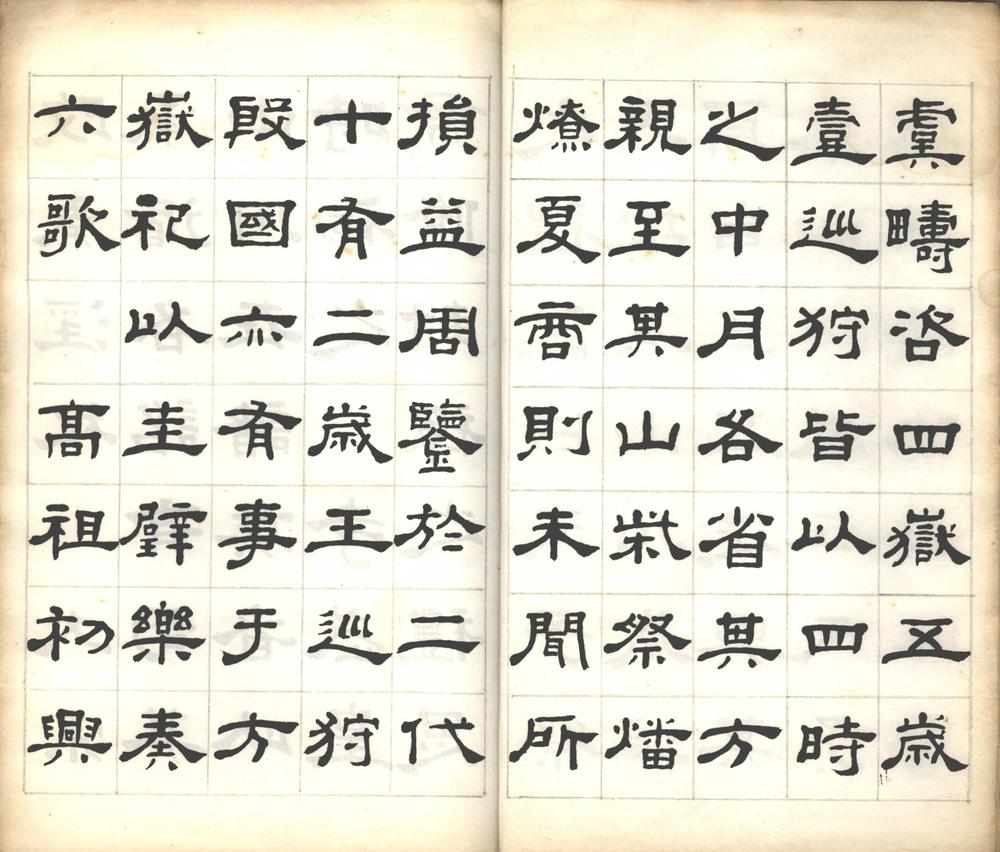 虞疇咨四嶽五歲
壹巡狩皆以四時
之中月各省其方
親至其山柴祭燔
燎夏商則未聞所
損益周鑒於二代
十有二歲王巡狩
殷國亦有事于方
嶽祀以圭璧樂奏
六歌　高祖初興